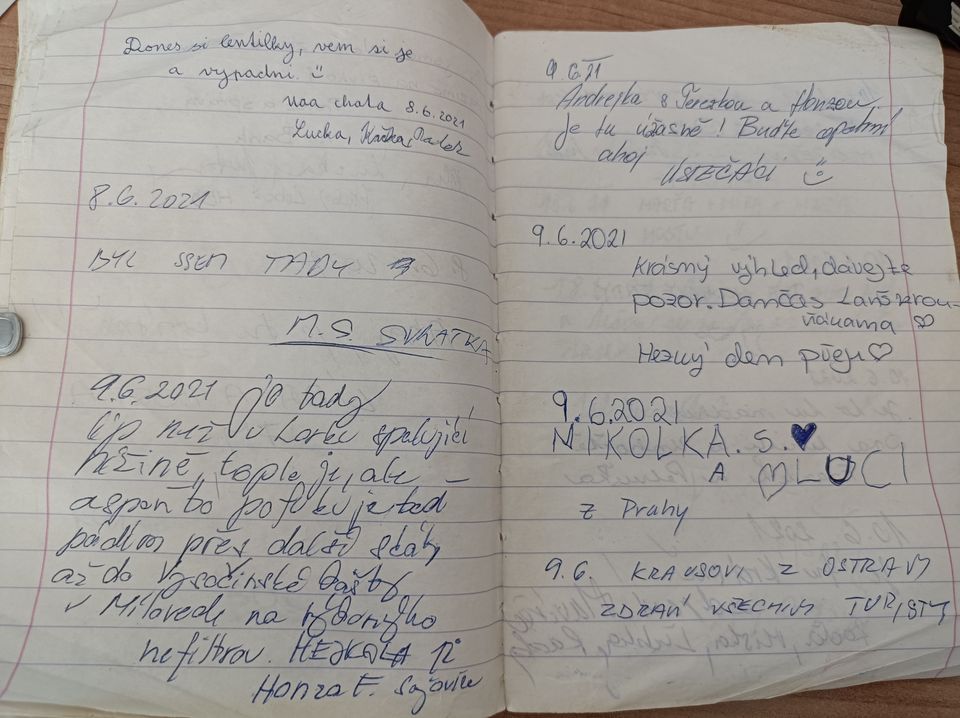 Dones si lentilky, vem si je
a vypadni. ☺
chata 8.6.2021
Lucka, Radek
8.6.2021
BYL JSEM TADY
M.S. SVRATKA
9.6.2021 je tady
líp než v Lorku
teplo je, ale
aspoň to pofukuje teď
přes další skály
až do Vysočinské bašty
v Milovech na výborného
nefiltrov. HEJKALA 12°
Honza F. Sázavě
9.6.21
Andrejka s Terezkou a Honzou.
Je tu úžasně! Buďte opatrní
ahoj
ÚSTEČÁCI ☺
9.6.2021
Krásný výhled, dávejte
pozor. Lanškrou-
ňákama ♡
Hezký den přeju ♡
9.6.2021
NIKOLKA. S. ♥
A MLUCI
z Prahy
9.6. KRAUSOVI Z OSTRAVY
ZDRAVÍ VŠECHNY TURISTY